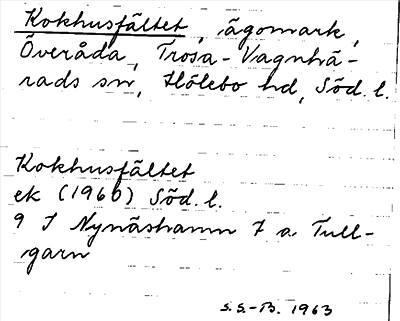 Kokhusfältet, ägomark,
Överåda, Trosa-Vagnhä-
rads sn, Hölebo hd, Söd. l.
Kokhusfältet
ek (1960) Söd. l.
9 I Nynäshamn 7 a. Tull-
garn
S.S.-B. 1963